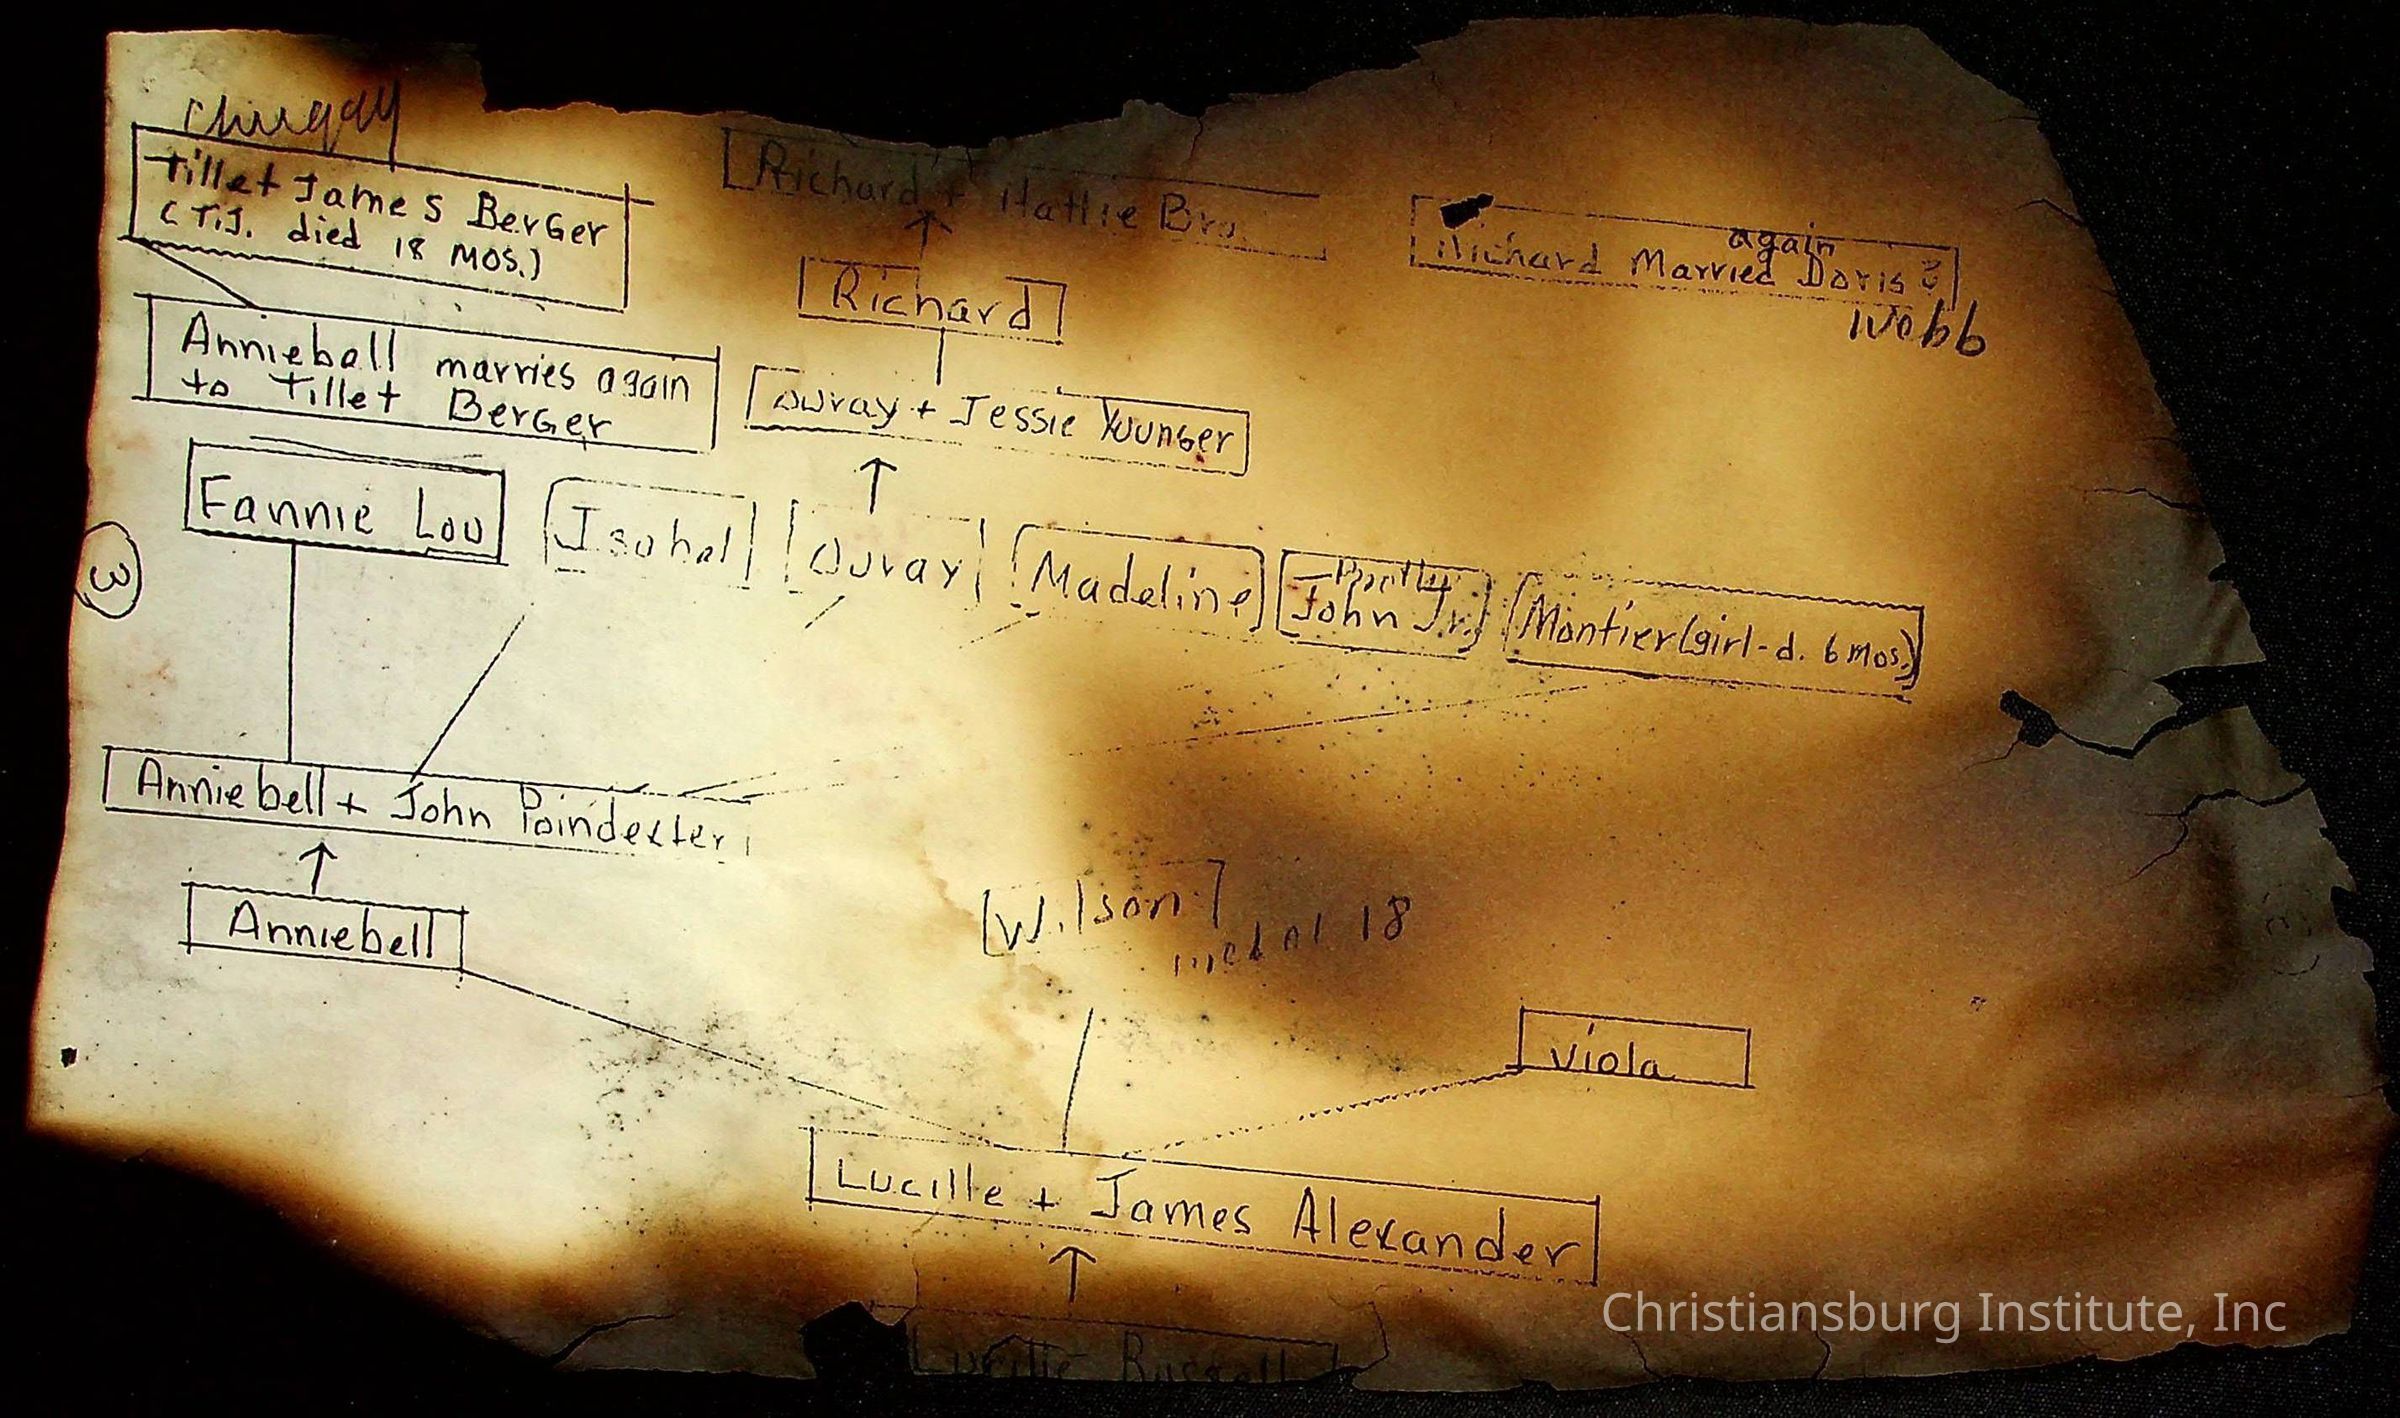 Tillet James BerGer
(T.J. died 18 MOS.)
Richard + Hattie
again
Richard Married Doris
Webb
Richard
Anniebell marries again
to Tillet BerGer
Ouray + Jessie Younger
Fannie Lou
Isabel
Ouray
Madeline
John Jr.
Montier (girl - d. 6 mos.)
3
Anniebell + John Poindexter
Anniebell
Wilson
18
Viola
Lucille + James Alexander
Lucille Russell
Christiansburg Institute, Inc